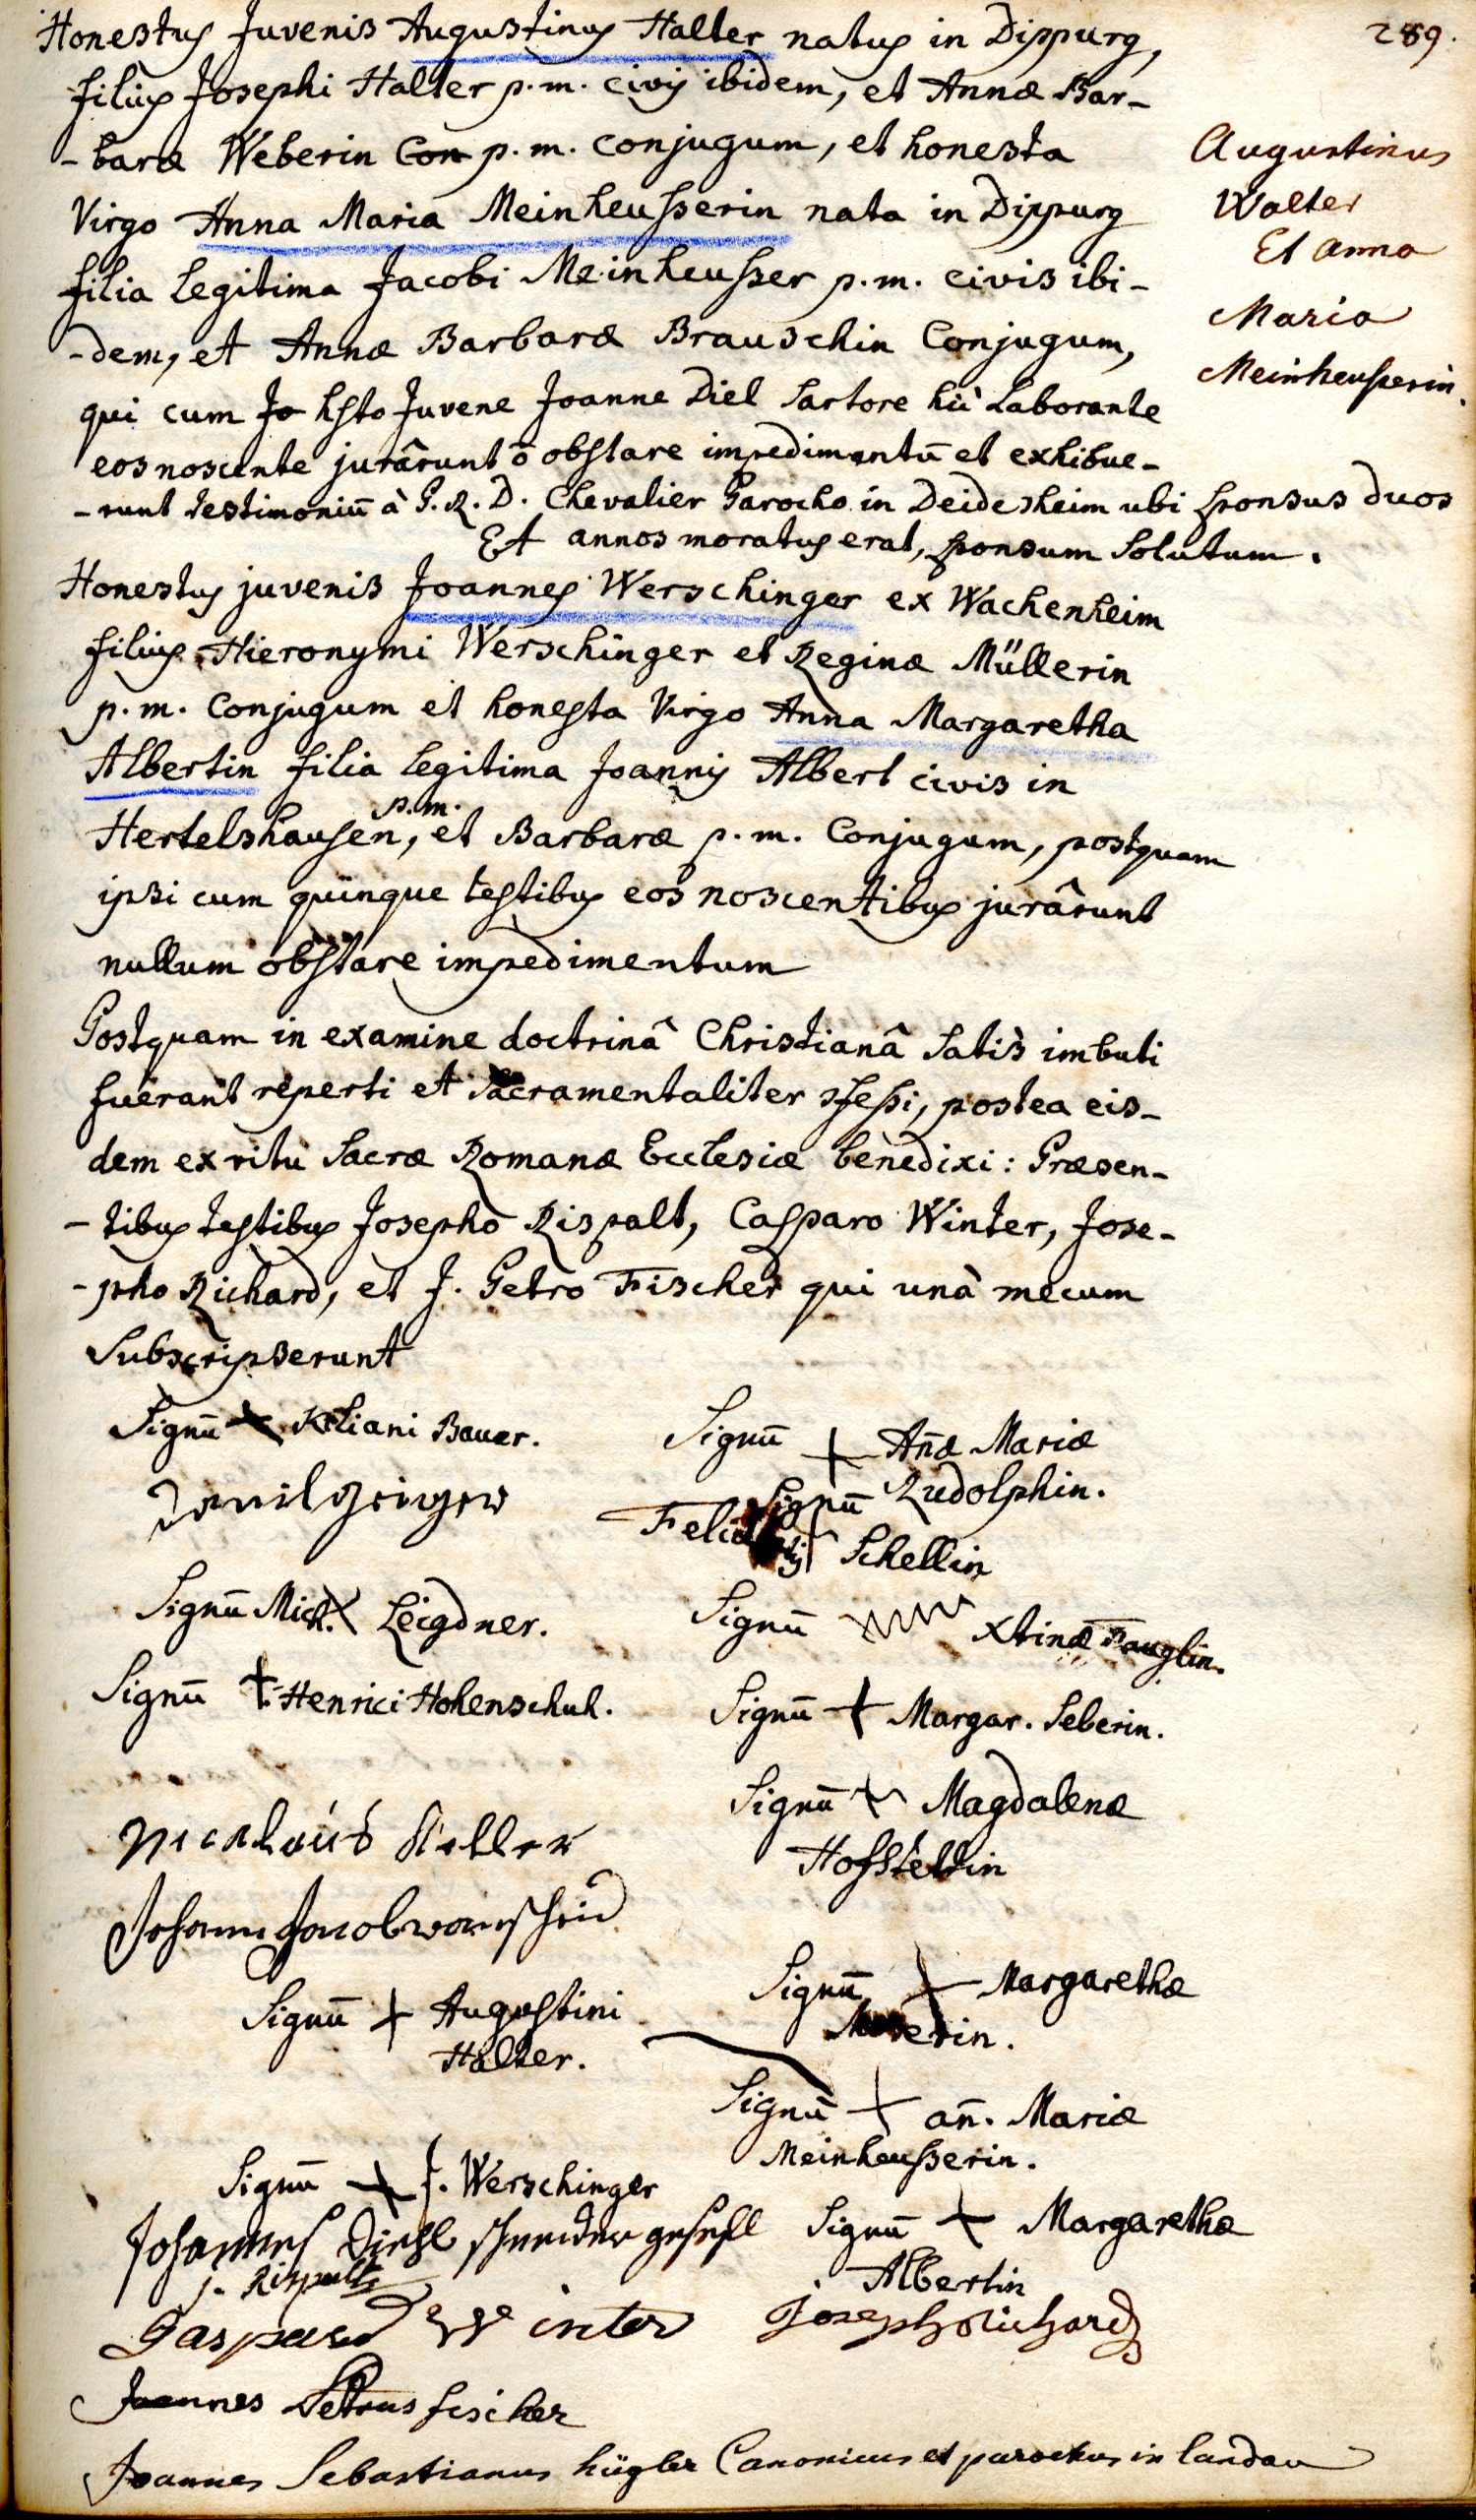 289.
Honestus Juvenis Augustinus Halter natus in Dippurg,
filius Josephi Halter p.m. civis ibidem, et Annæ Bar-
-baræ Weberin Con p.m. conjugum, et honesta
Virgo Anna Maria Meinheusserin nata in Dippurg
filia legitima Jacobi Meinheusser p.m. civis ibi-
-dem, et Annæ Barbaræ Brauschin Conjugum,
qui cum Jo hsto Juvene Joanne Diel Sartore hic Laborante
eos noscente jurârunt õ obstare impedimentū et exhibue-
-runt testimoniū à P.R.D. Chevalier Parocho in Deidesheim ubi sponsus duos
Et annos moratus erat, sponsum solutum.
Augustinus
Walter
Et anna
Maria
Meinheusserin.
Honestus juvenis Joannes Werschinger ex Wachenheim
filius Hieronymi Werschinger et Reginæ Müllerin
p.m. Conjugum et honesta Virgo Anna Margaretha
Albertin filia legitima Joannis Albert civis in
p.m.
Hertelshausen, et Barbaræ p.m. Conjugum, postquam
ipsi cum quinque testibus eos noscentibus jurârunt
nullum obstare impedimentum
Postquam in examine doctrinâ Christianâ Satis imbuti
fuerant reperti et Sacramentaliter fessi, postea eis-
dem ex ritu Sacræ Romanæ Ecclesiæ benedixi: Præsen-
-tibus testibus Josepho Rispalt, Casparo Winter, Jose-
-pho Richard, et J. Petro Fischer qui unà mecum
Subscripserunt
Signū Kiliani Bauer.
Signū Añæ Mariæ
Rudolphin.
Signū
Schellin
Signū Mich. Leigdner.
Signū Xtinæ
Signū Henrici Hohenschuh.
Signū Margar. Seberin.
Signū Magdalenæ
Hofstettin
Nicklaus Keller
Johann Jacob
Signū Augustini
Halter.
Signū Margarethæ
Signū añ. Mariæ
Meinheusserin.
Signū J. Werschinger
Johannes Diehl schneider gesell
Signū Margarethæ
Albertin
J. Rispalt
Gaspard Winter
Joseph Richard
Joannes Petrus fischer
Joannes Sebastianus hügler Canonicus et parochus in landau